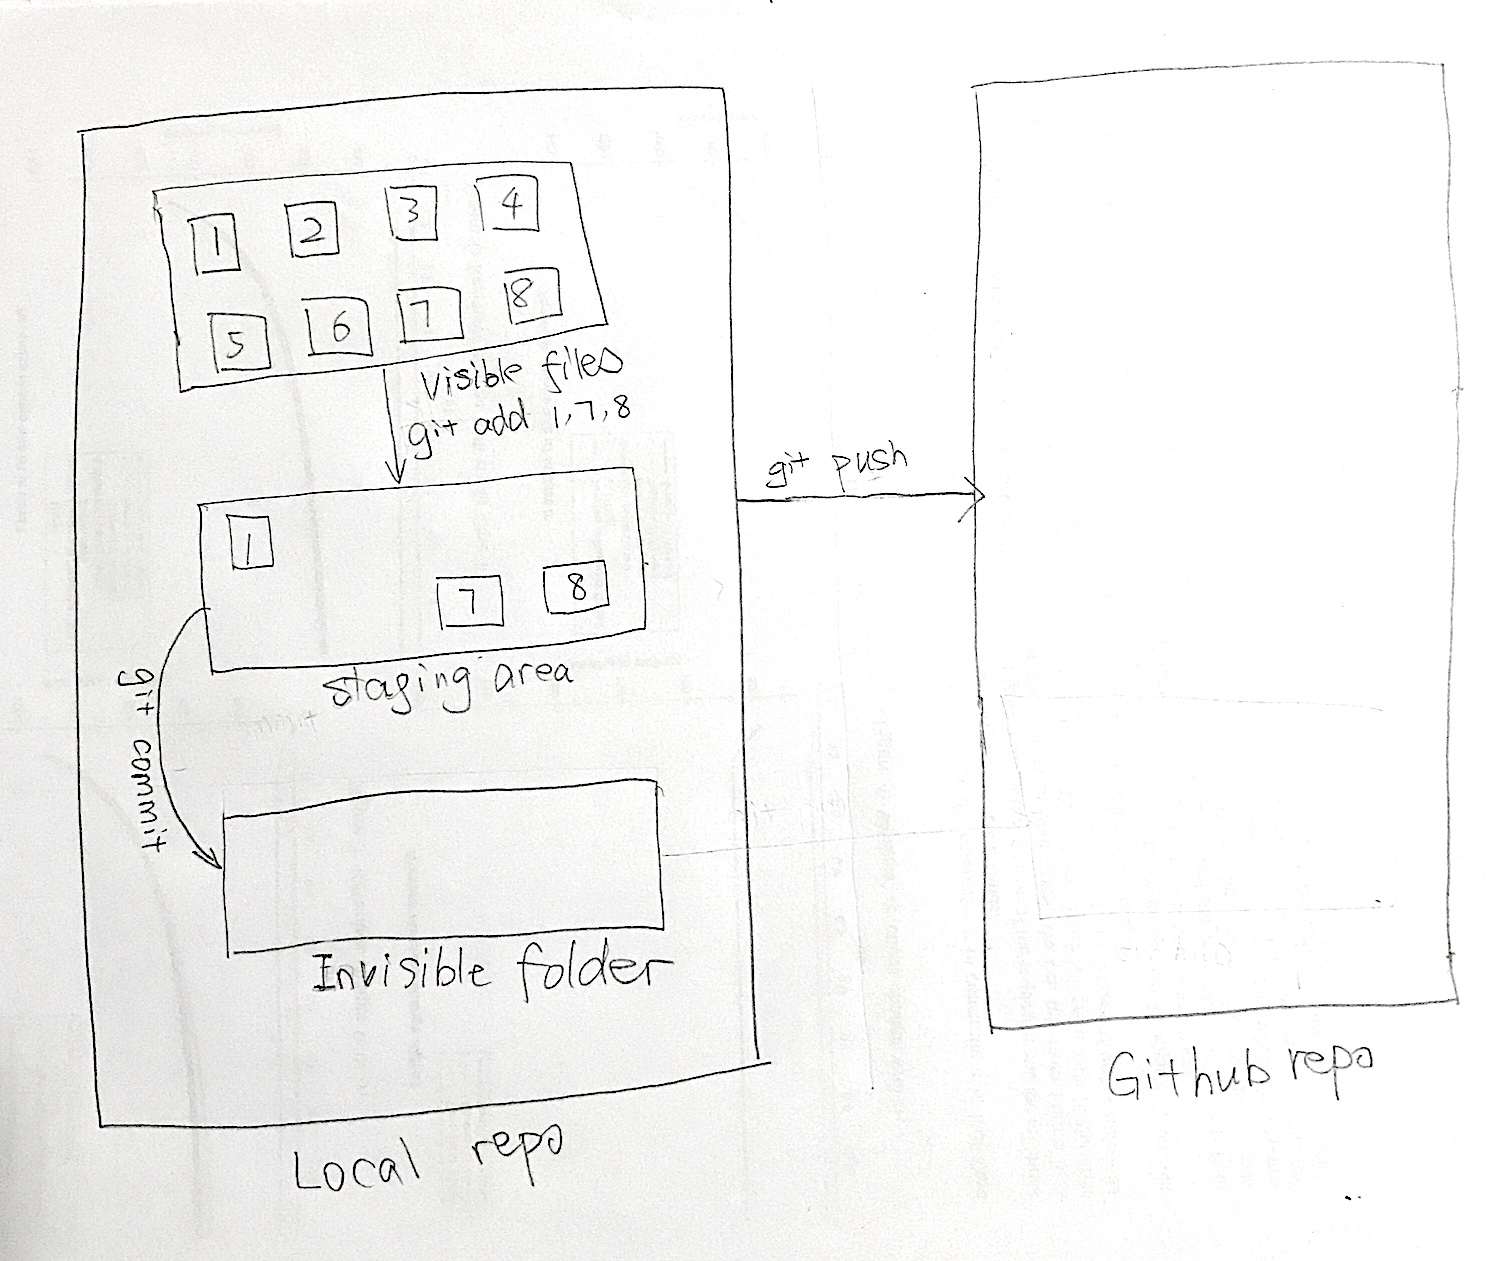 1 2 3 4
5 6 7 8
visible files
git add 1,7,8
git push
1
7 8
staging area
git commit
Invisible folder
Github repo
Local repo